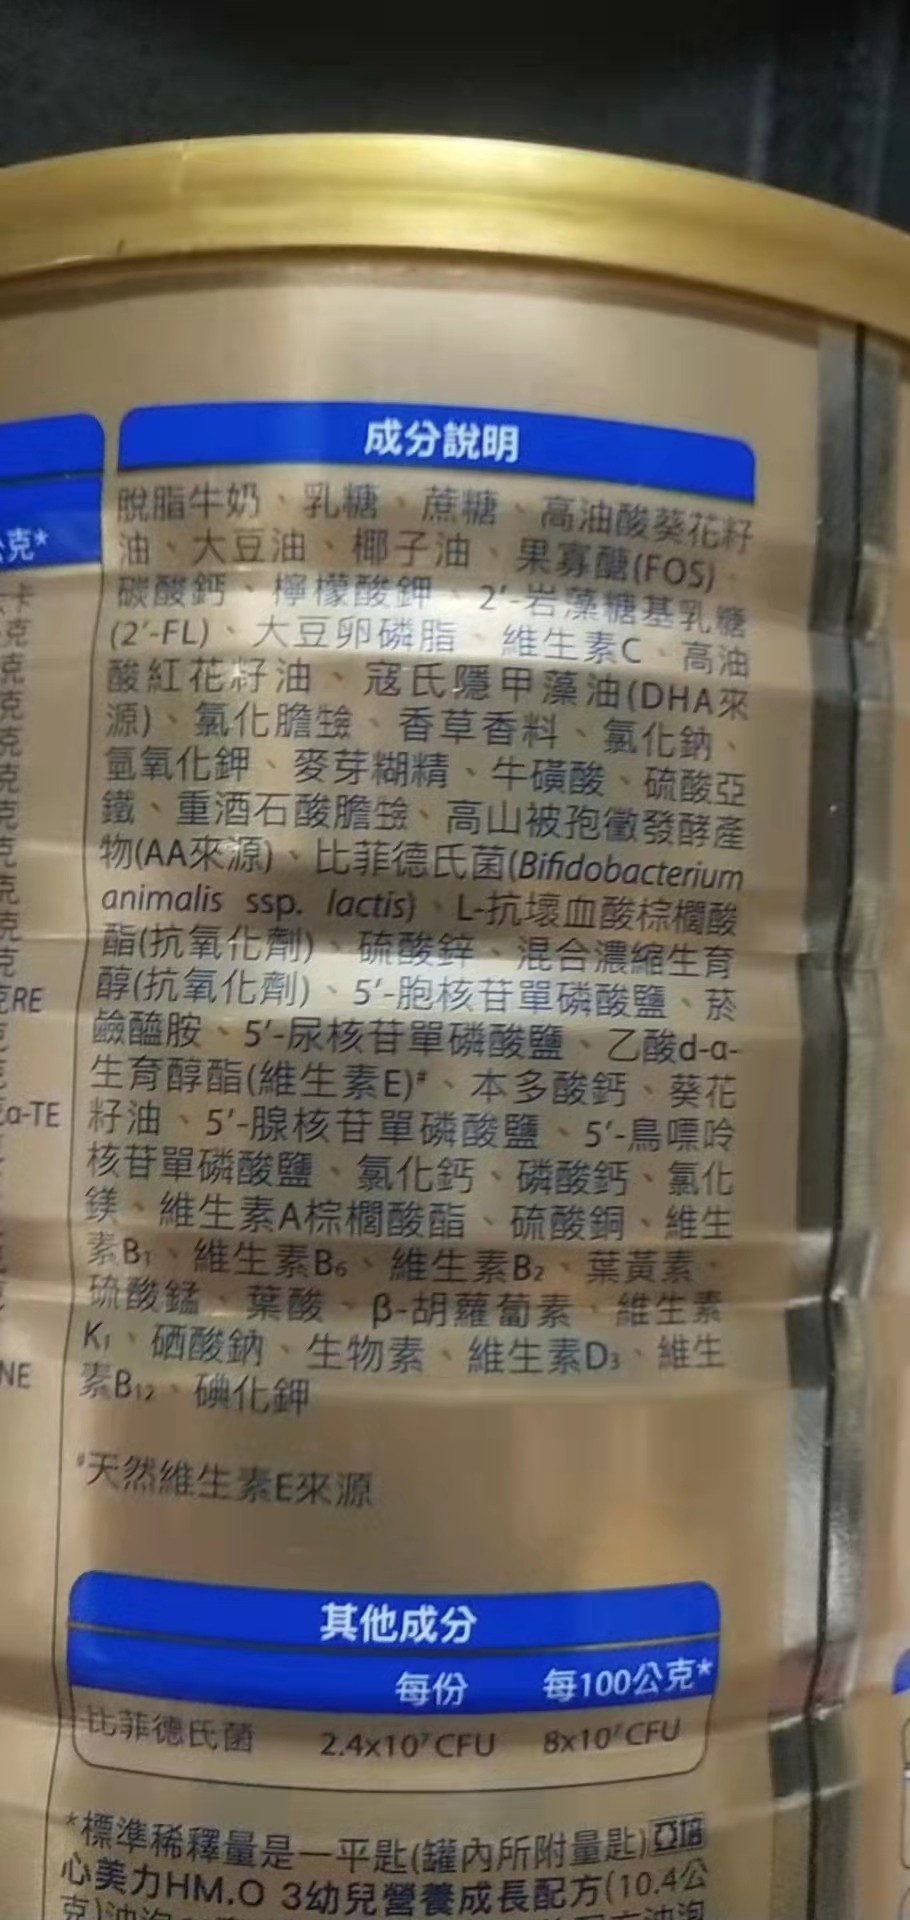 成分說明
脫脂牛奶、乳糖、蔗糖、高油酸葵花籽
油、大豆油、椰子油、果寡醣(FOS)、
碳酸鈣、檸檬酸鉀、2'-岩藻糖基乳糖
(2'-FL)、大豆卵磷脂、維生素C、高油
酸紅花籽油、寇氏隱甲藻油(DHA來
源)、氯化膽鹼、香草香料、氯化鈉、
氫氧化鉀、麥芽糊精、牛磺酸、硫酸亞
鐵、重酒石酸膽鹼、高山被孢黴發酵產
物(AA來源)、比菲德氏菌(Bifidobacterium
animalis ssp. lactis)、L-抗壞血酸棕櫚酸
酯(抗氧化劑)、硫酸鋅、混合濃縮生育
醇(抗氧化劑)、5'-胞核苷單磷酸鹽、菸
鹼醯胺、5'-尿核苷單磷酸鹽、乙酸d-α-
生育醇酯(維生素E)#、本多酸鈣、葵花
籽油、5'-腺核苷單磷酸鹽、5'-鳥嘌呤
核苷單磷酸鹽、氯化鈣、磷酸鈣、氯化
鎂、維生素A棕櫚酸酯、硫酸銅、維生
素B1、維生素B6、維生素B2、葉黃素、
硫酸錳、葉酸、β-胡蘿蔔素、維生素
K1、硒酸鈉、生物素、維生素D3、維生
素B12、碘化鉀
#天然維生素E來源
其他成分
每份 每100公克*
比菲德氏菌 2.4x10⁷CFU 8x10⁷CFU
*標準稀釋量是一平匙(罐內所附量匙)亞培
心美力HM.O 3幼兒營養成長配方(10.4公
公克*
卡
克
克
克
克
克
克
克
克
克
克
RE
α-TE
NE